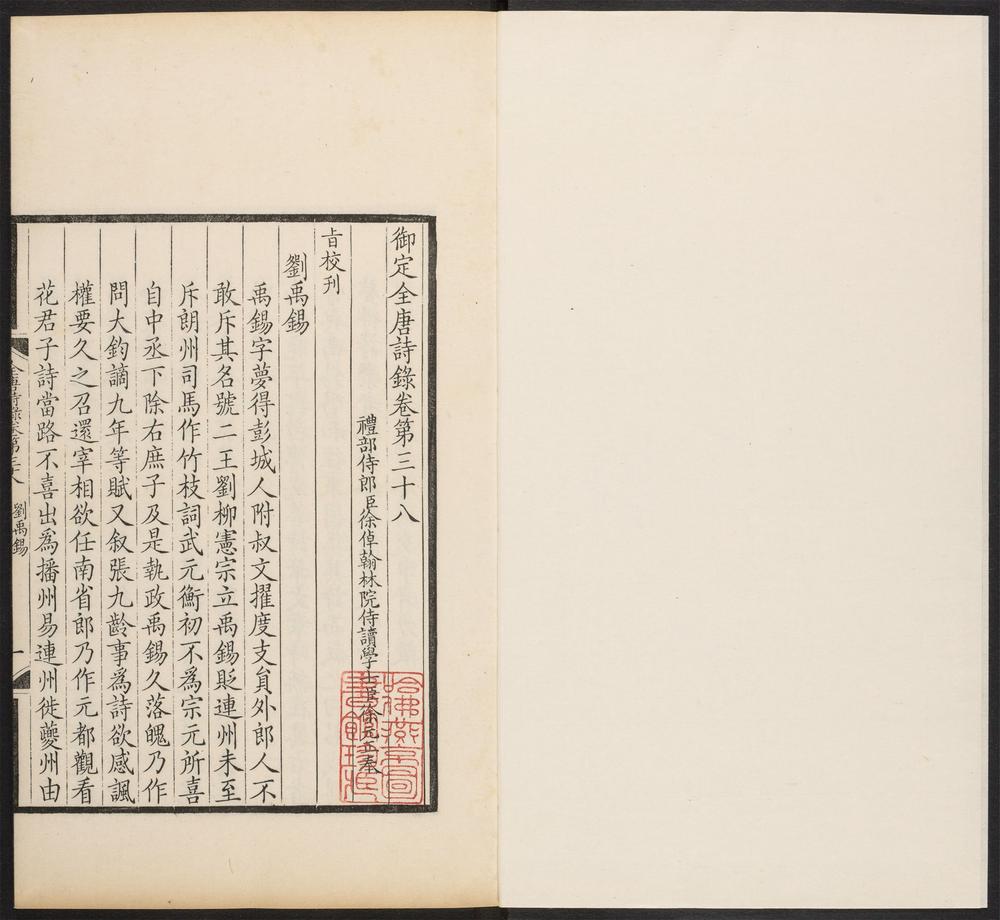 御定全唐詩錄卷第三十八
禮部侍郎臣徐倬翰林院侍讀學士臣徐元正奉
旨校刊
劉禹錫
禹錫字夢得彭城人附叔文擢度支貟外郎人不
敢斥其名號二王劉柳憲宗立禹錫貶連州未至
斥朗州司馬作竹枝詞武元衡初不爲宗元所喜
自中丞下除右庶子及是執政禹錫久落魄乃作
問大鈞謫九年等賦又叙張九齡事爲詩欲感諷
權要久之召還宰相欲任南省郎乃作元都觀看
花君子詩當路不喜出爲播州易連州徙夔州由
全唐詩錄卷第三十八 劉禹錫 一
哈佛燕京圖
書館珍藏